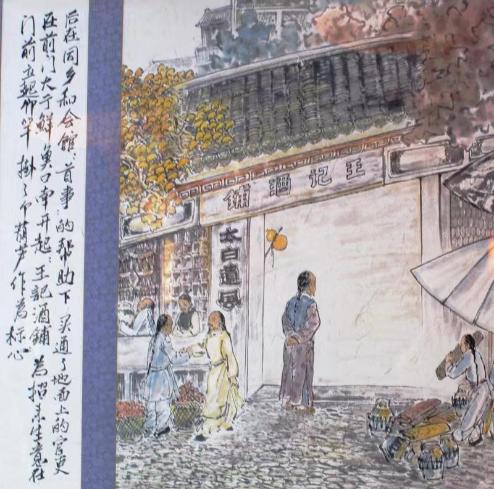 后在同乡和会馆"首事"的帮助下买通了地面上的官吏
在前门大亍鲜鱼口南开起"王記酒鋪"為招来生意在
门前立起竹竿掛了个葫芦作為标心
王记酒鋪
太白遺風